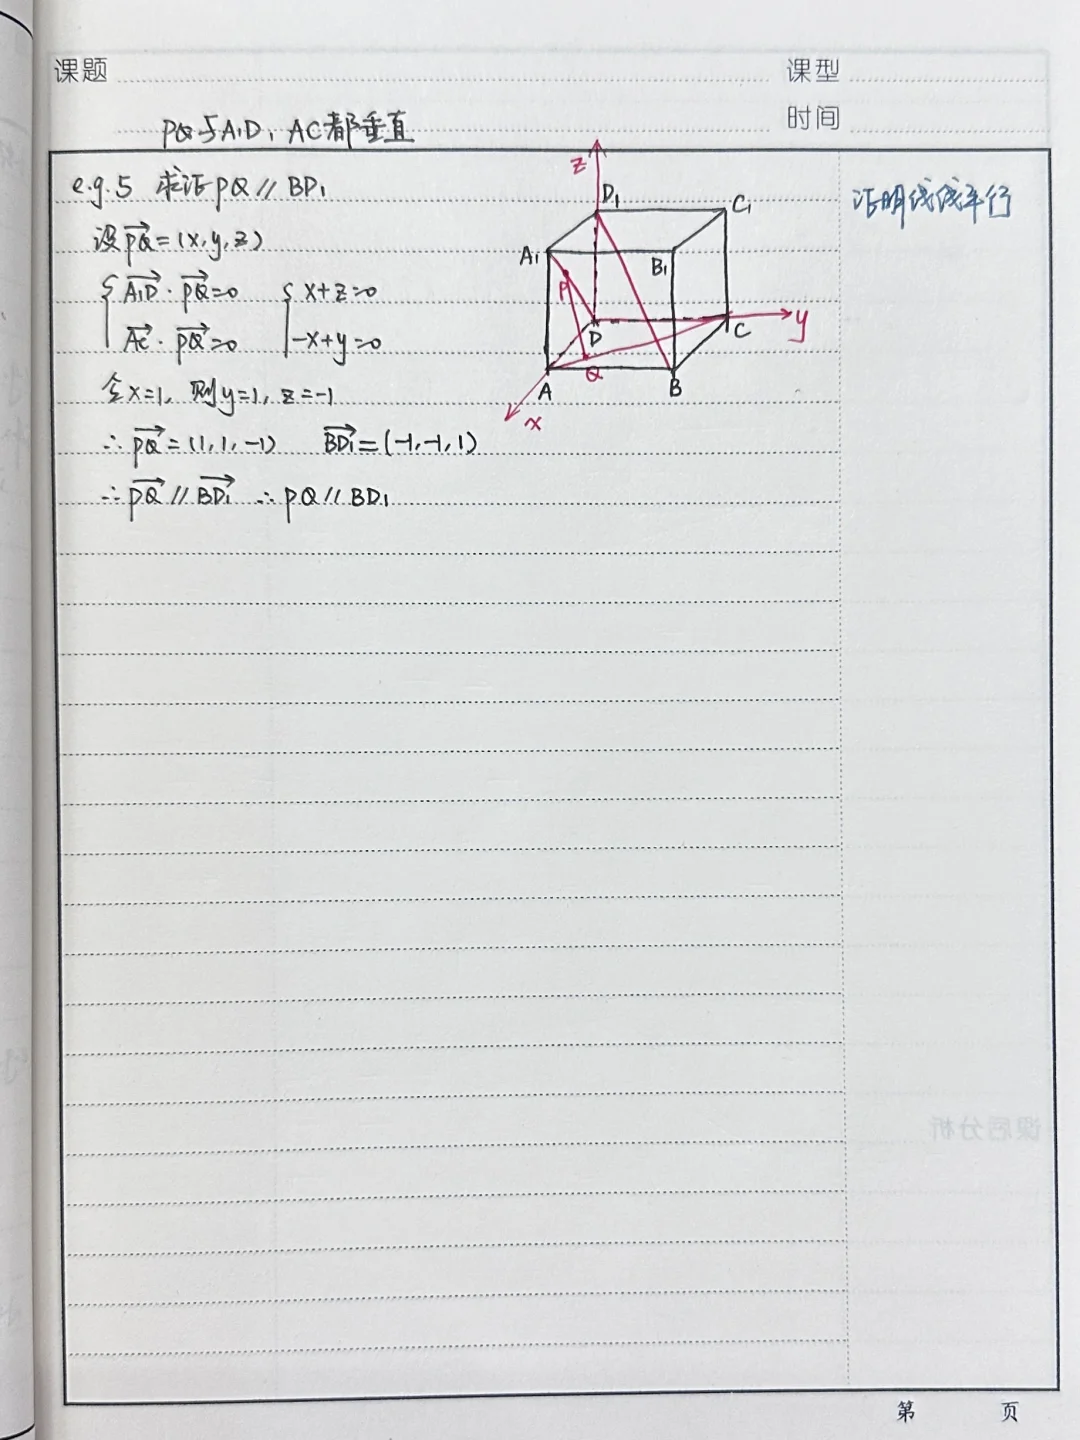 课题
课型
时间
PQ与A₁D,AC都垂直
e.g.5 求证PQ // BD₁
证明线线平行
设PQ⃗=(x,y,z)
{ A₁D⃗·PQ⃗=0 { x+z=0
AC⃗·PQ⃗=0 -x+y=0
令x=1, 则y=1, z=-1
∴PQ⃗=(1,1,-1) BD₁⃗=(-1,-1,1)
∴PQ⃗ // BD₁⃗ ∴PQ // BD₁
z
D₁
C₁
A₁
B₁
P
D
C
y
Q
A
B
x
课后分析
第 页